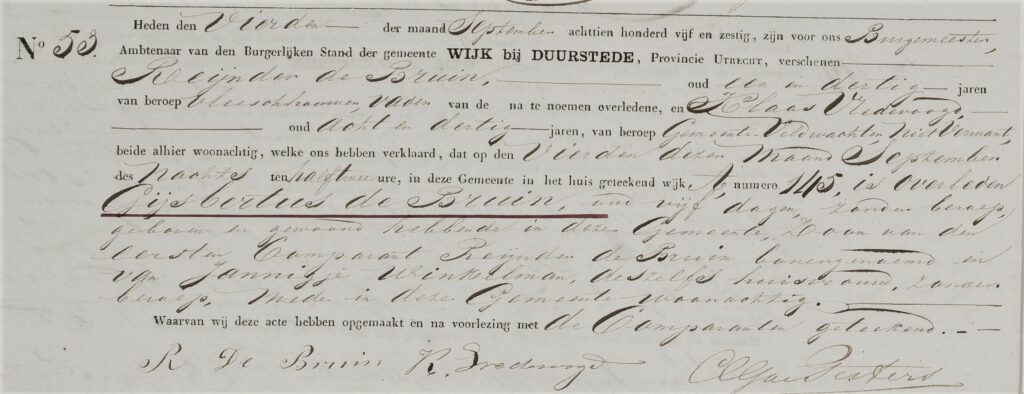 Heden den Vierden der maand September achttien honderd vijf en zestig, zijn voor ons Burgemeester,
No 53. Ambtenaar van den Burgerlijken Stand der gemeente WIJK bij DUURSTEDE, Provincie UTRECHT, verschenen
Reijnder de Bruin, oud een en dertig jaren
van beroep vleeschhouwer, vader van de na te noemen overledene, en Klaas Vredevoogd,
oud Acht en dertig jaren, van beroep Gemeente Veldwachter, Niet Verwant,
beide alhier woonachtig, welke ons hebben verklaard, dat op den Vierden dezer Maand September
des Nachts ten half twee ure, in deze Gemeente in het huis geteekend wijk A, numero 145, is overleden
Gijsbertus de Bruin, oud vijf dagen, zonder beroep,
geboren en gewoond hebbende in deze Gemeente, Zoon van den
eersten Comparant Reijnder de Bruin bovengenoemd en
van Jannigje Winkelman, deszelfs huisvrouw, zonder
beroep, mede in deze Gemeente woonachtig.
Waarvan wij deze acte hebben opgemaakt en na voorlezing met de Comparanten geteekend.
R De Bruin K. Vredevoogd